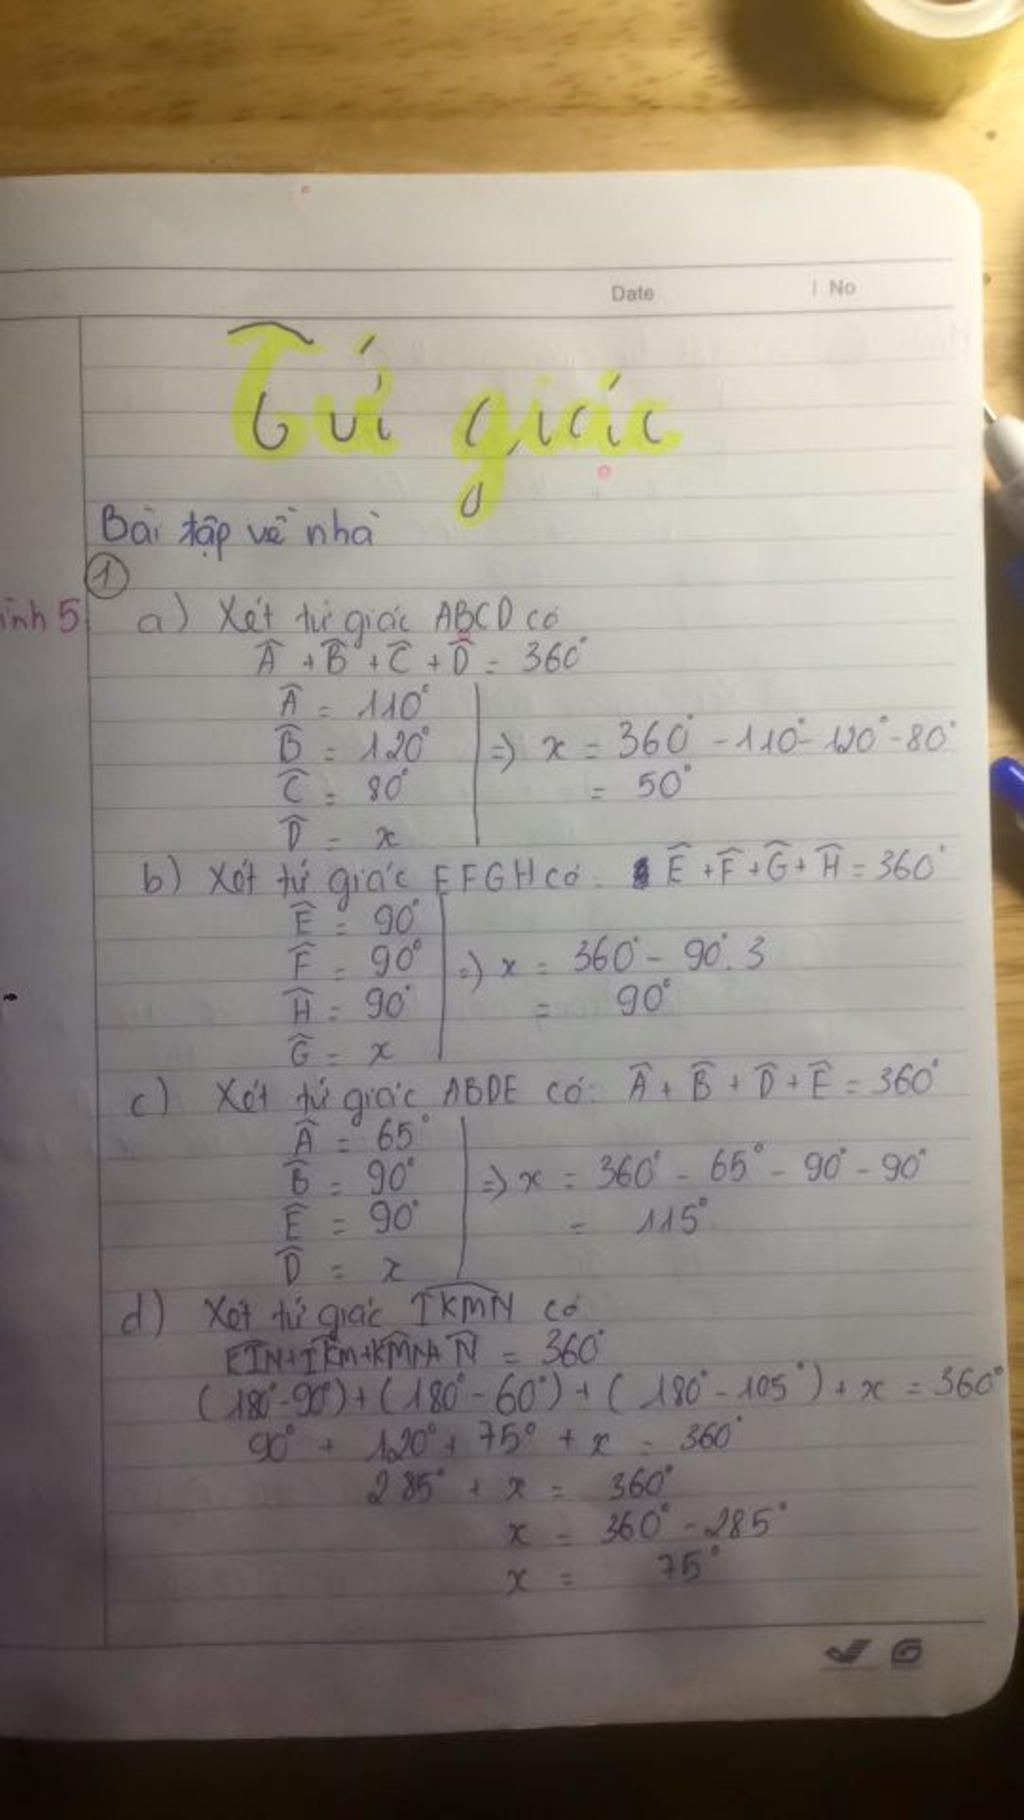 Date | No
Tứ giác
Bài tập về nhà
①
ình 5 a) Xét tứ giác ABCD có
Â + B̂ + Ĉ + D̂ = 360°
Â = 110°
B̂ = 120° => x = 360° - 110° - 120° - 80°
Ĉ = 80° = 50°
D̂ = x
b) Xét tứ giác EFGH có: Ê + F̂ + Ĝ + Ĥ = 360°
Ê = 90°
F̂ = 90° => x = 360° - 90°. 3
Ĥ = 90° = 90°
Ĝ = x
c) Xét tứ giác ABDE có: Â + B̂ + D̂ + Ê = 360°
Â = 65°
B̂ = 90° => x = 360° - 65° - 90° - 90°
Ê = 90° = 115°
D̂ = x
d) Xét tứ giác IKMN có
+ N̂ = 360°
(180°-90°) + (180° - 60°) + (180° - 105°) + x = 360°
90° + 120° + 75° + x = 360°
285° + x = 360°
x = 360° - 285°
x = 75°